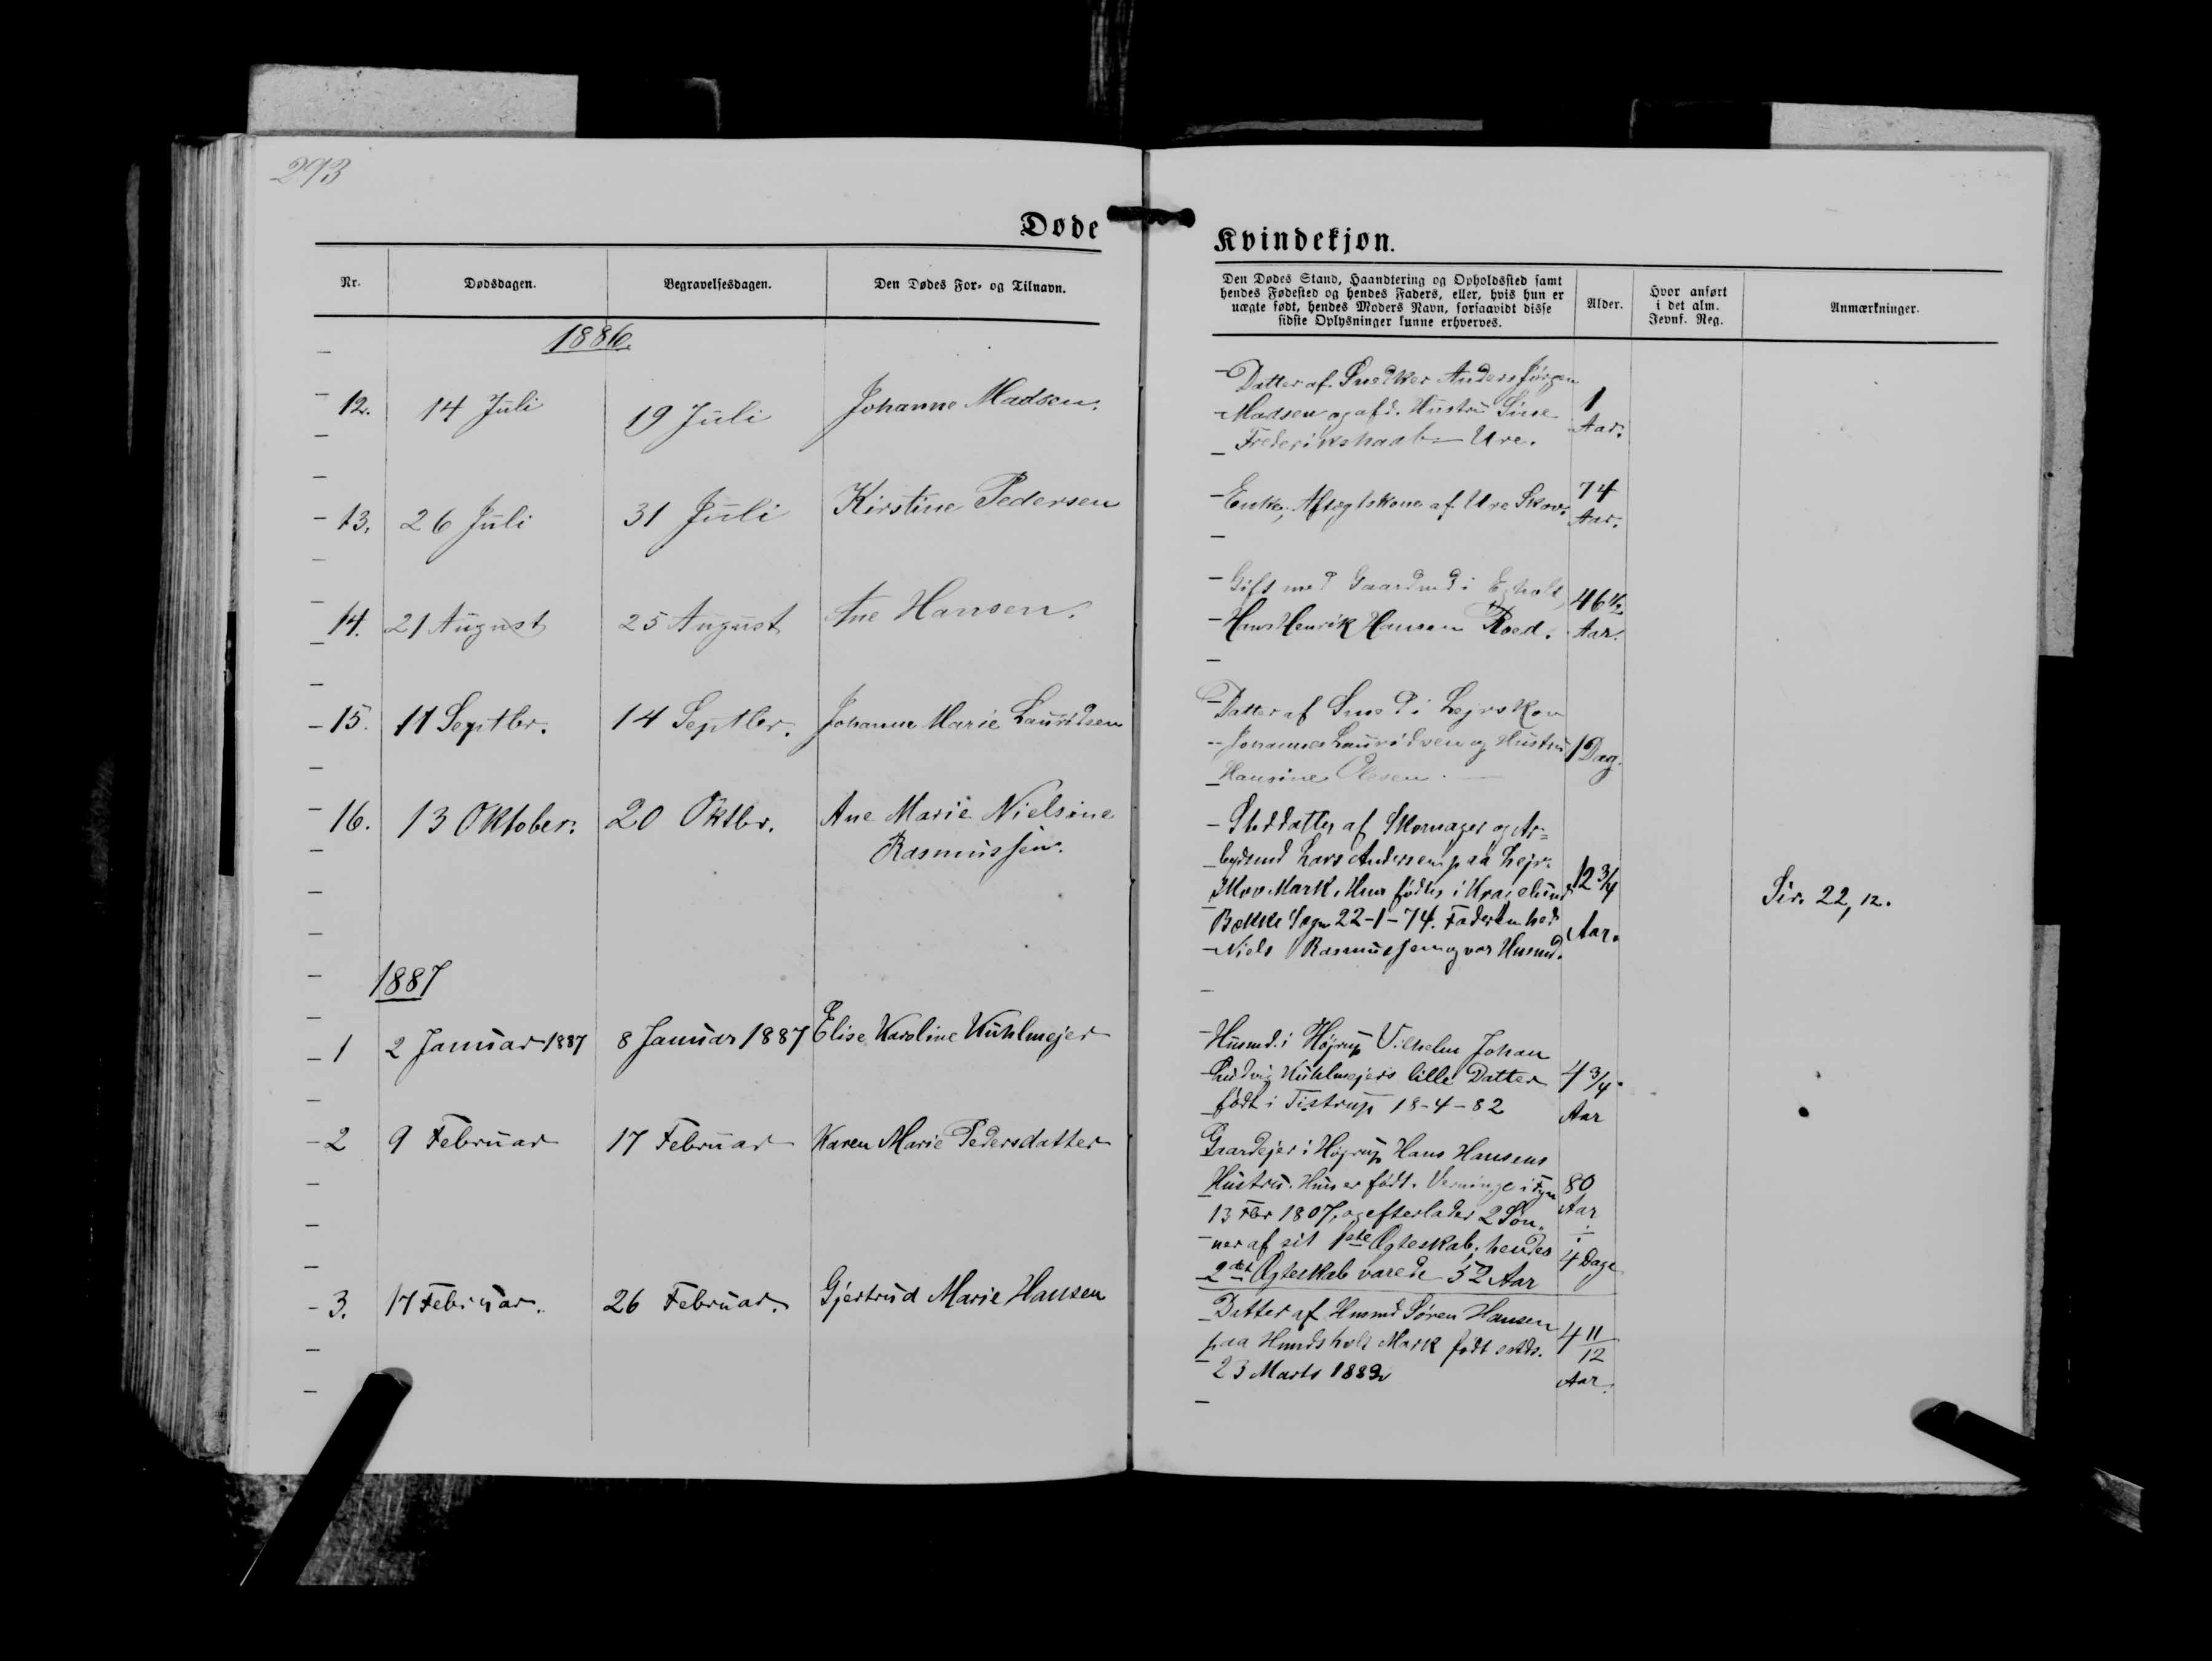 293
Døde
Kvindekjøn.
Nr.
Dødsdagen.
Begravelsesdagen.
Den Dødes For- og Tilnavn.
Den Dødes Stand, Haandtering og Opholdssted samt
hendes Fødested og hendes Faders, eller, hvis hun er
uægte født, hendes Moders Navn, forsaavidt disse
sidste Oplysninger kunne erhverves.
Alder.
Hvor anført
i det alm.
Jevnf. Reg.
Anmærkninger.
1886.
12. 14 Juli 19 Juli Johanne Madsen.
Datter af Snedker Anders Jørgen
Madsen og afd. Hustru Sine
Frederikshaab Ure.
1
Aar.
13. 26 Juli 31 Juli Kirstine Pedersen
Enke, Aftægtskone af Ure Skov.
74
Aar.
14. 21 August 25 August Ane Hansen.
Gift med Gaardmd i Egholt,
Hans Henrik Hansen Roed.
46 1/2
Aar.
15. 11 Septbr. 14 Septbr. Johanne Marie Lauridsen
Datter af Smed i Lejrskov
Johannes Lauridsen og Hustru
Hansine Olesen.
1 Dag.
16. 13 Oktober. 20 Oktbr. Ane Marie Nielsine
Rasmussen.
Steddatter af Skomager og Ar=
bejdsmd Lars Andersen paa Lejr-
skov Mark. Hun fødtes i Kragelund
Bække Sogn 22-1-74. Faderen hed
Niels Rasmussen og var Husmd.
12 3/4
Aar.
Sir. 22, 12.
1887
1 2 Januar 1887 8 Januar 1887 Elise Karoline Kuhlmejer
Husmd. i Højrup Vilhelm Johan
Ludvig Kuhlmejers lille Datter
født i Tistrup 18-4-82
4 3/4
Aar
2 9 Februar 17 Februar Karen Marie Pedersdatter
Gaardejer i Højrup Hans Hansens
Hustru. Hun er født. Verninge i Fyn
13 Fbr 1807, og efterlader 2 Søn-
ner af sit 1ste Ægteskab; hendes
2det Ægteskab varede 52 Aar
80
Aar
4 Dage
3. 17 Februar. 26 Februar. Gjertrud Marie Hansen
Datter af Husmd Søren Hansen
paa Hundsholt Mark født
23 Marts 1882
4 11/12
Aar.